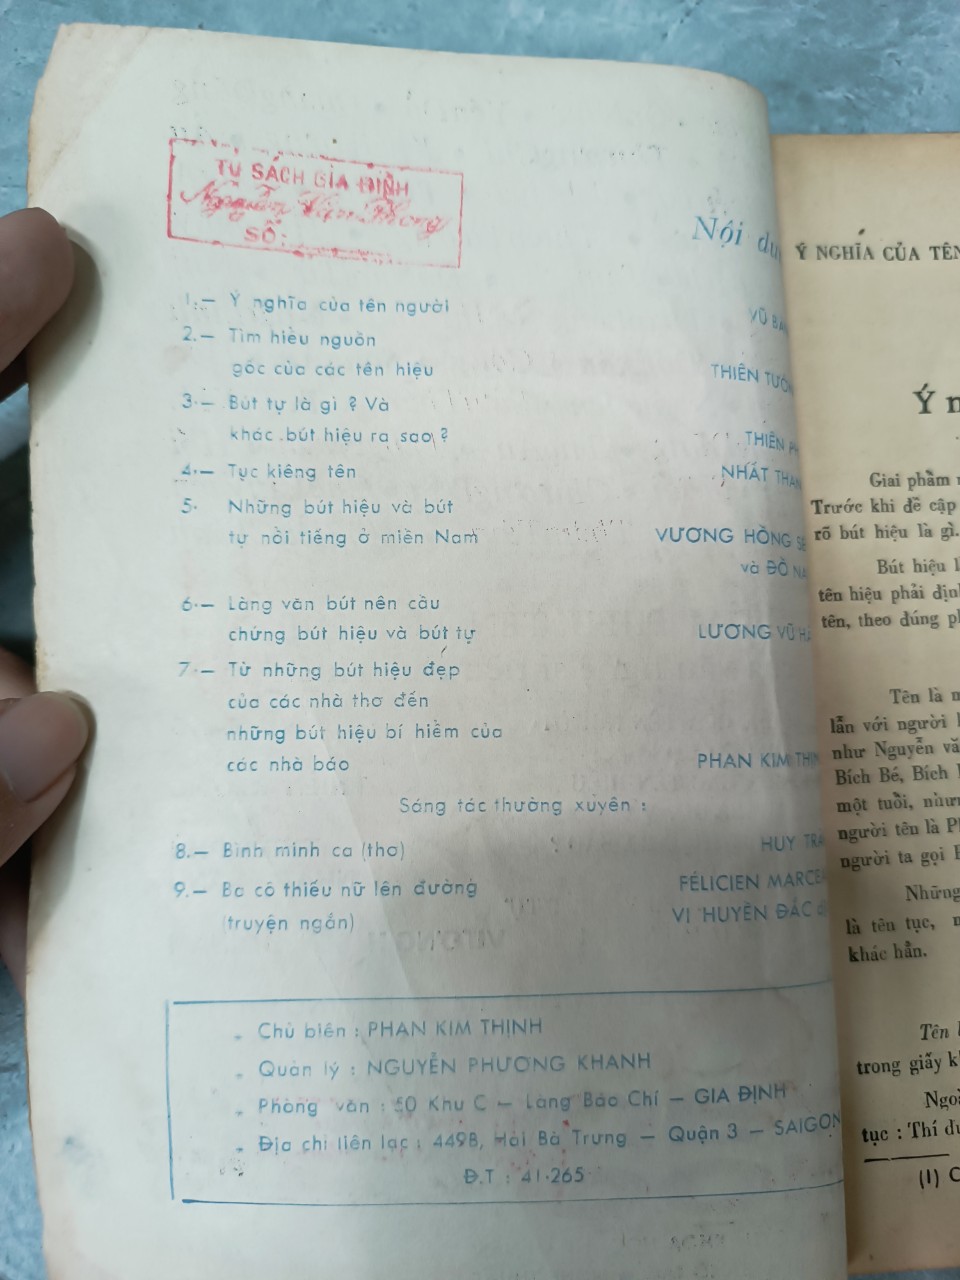 TỦ SÁCH GIA ĐỊNH
Nguyễn Văn Phong
SỐ:
Nội
1.— Ý nghĩa của tên người
VŨ
2.— Tìm hiểu nguồn
gốc của các tên hiệu
THIÊN
3.— Bút tự là gì ? Và
khác bút hiệu ra sao ?
THIÊN
4.— Tục kiêng tên
NHẤT
5. Những bút hiệu và bút
tự nổi tiếng ở miền Nam
VƯƠNG HỒNG
và ĐỒ
6.— Làng văn bút nên cầu
chứng bút hiệu và bút tự
LƯƠNG VŨ
7.— Từ những bút hiệu đẹp
của các nhà thơ đến
những bút hiệu bí hiểm của
các nhà báo
PHAN KIM
Sáng tác thường xuyên :
8.— Bình minh ca (thơ)
HUY
9.— Ba cô thiếu nữ lên đường
FÉLICIEN
(truyện ngắn)
VI HUYỀN ĐẮC
- Chủ biên : PHAN KIM THỊNH
- Quản lý : NGUYỄN PHƯƠNG KHANH
- Phòng văn : 50 Khu C — Làng Báo Chí — GIA ĐỊNH
- Địa chỉ liên lạc : 449B, Hai Bà Trưng — Quận 3 — SAIGON
Đ.T : 41.265
Ý NGHĨA CỦA TÊN
Ý
Giai phẩm
Trước khi đề cập
rõ bút hiệu là gì.
Bút hiệu
tên hiệu phải
tên, theo đúng
Tên là
lẫn với người
như Nguyễn
Bích Bé, Bích
một tuổi,
người tên là
người ta gọi
Những
là tên tục,
khác hẳn.
Tên
trong giấy
tục : Thí
(1)